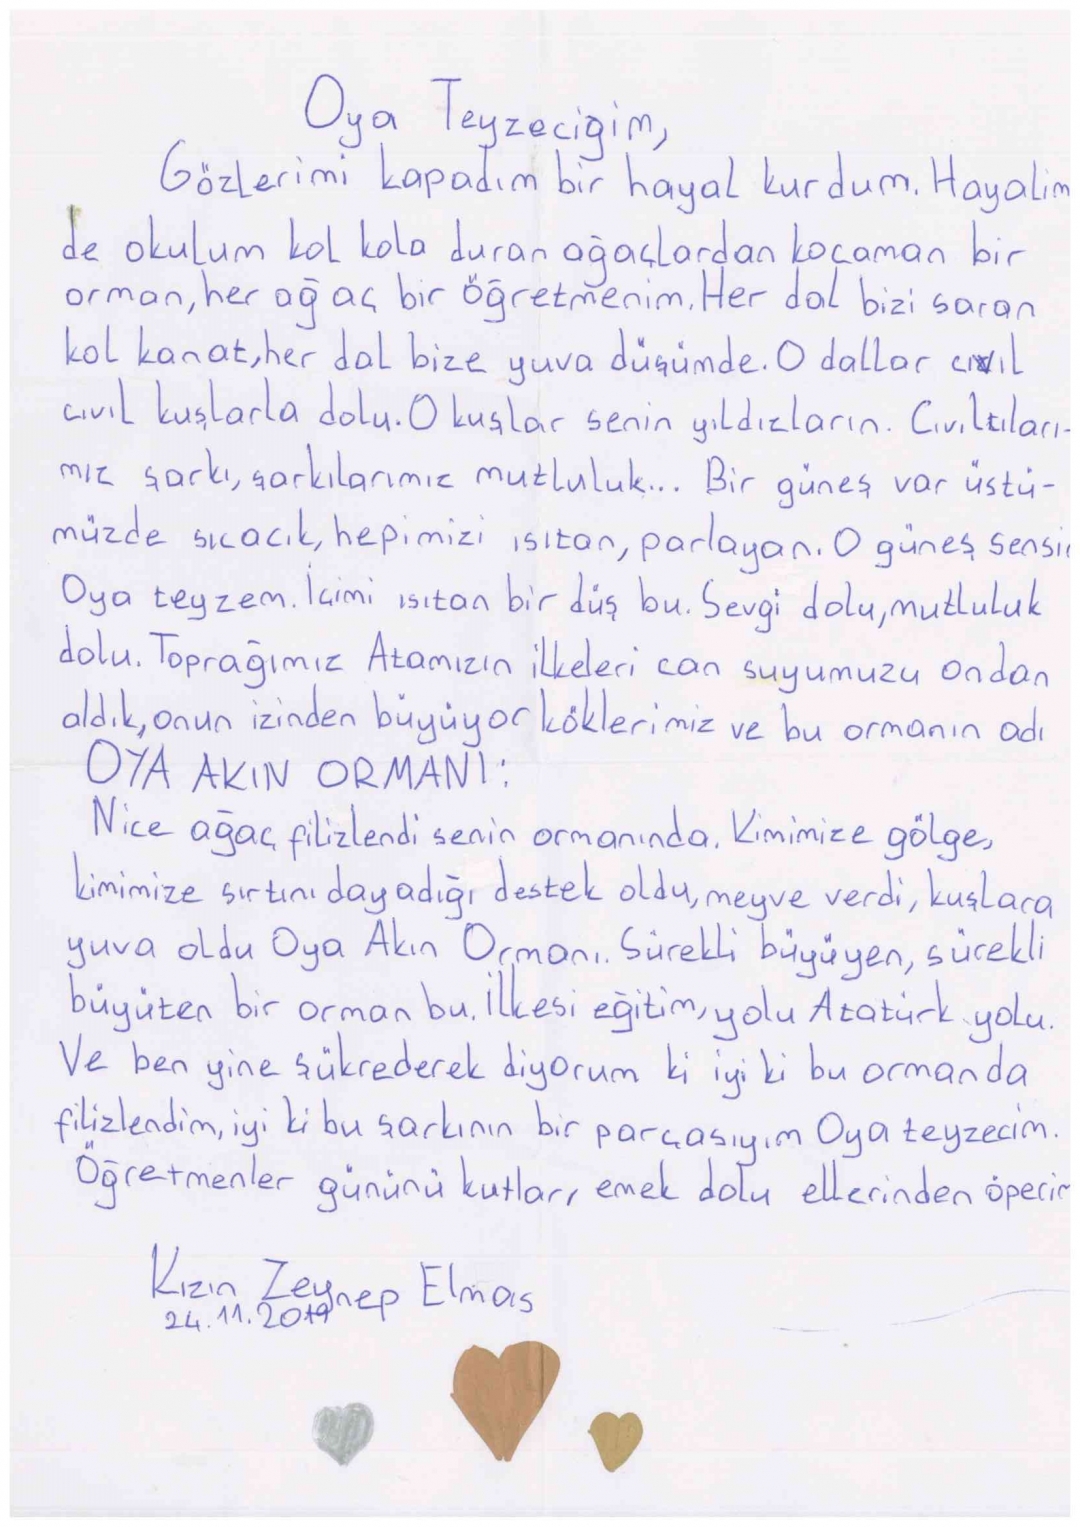 Oya Teyzeciğim,
Gözlerimi kapadım bir hayal kurdum. Hayalim
de okulum kol kola duran ağaçlardan kocaman bir
orman, her ağaç bir öğretmenim. Her dal bizi saran
kol kanat, her dal bize yuva düşümde. O dallar cıvıl
cıvıl kuşlarla dolu. O kuşlar senin yıldızların. Cıvıltıları-
mız şarkı, şarkılarımız mutluluk... Bir güneş var üstü-
müzde sıcacık, hepimizi ısıtan, parlayan. O güneş sensin
Oya teyzem. İçimi ısıtan bir düş bu. Sevgi dolu, mutluluk
dolu. Toprağımız Atamızın ilkeleri can suyumuzu ondan
aldık, onun izinden büyüyor köklerimiz ve bu ormanın adı
OYA AKIN ORMANI:
Nice ağaç filizlendi senin ormanında. Kimimize gölge,
kimimize sırtını dayadığı destek oldu, meyve verdi, kuşlara
yuva oldu Oya Akın Ormanı. Sürekli büyüyen, sürekli
büyüten bir orman bu. İlkesi eğitim, yolu Atatürk yolu.
Ve ben yine şükrederek diyorum ki iyi ki bu ormanda
filizlendim, iyi ki bu şarkının bir parçasıyım Oya teyzecim.
Öğretmenler gününü kutlar, emek dolu ellerinden öperim
Kızın Zeynep Elmas
24.11.2019